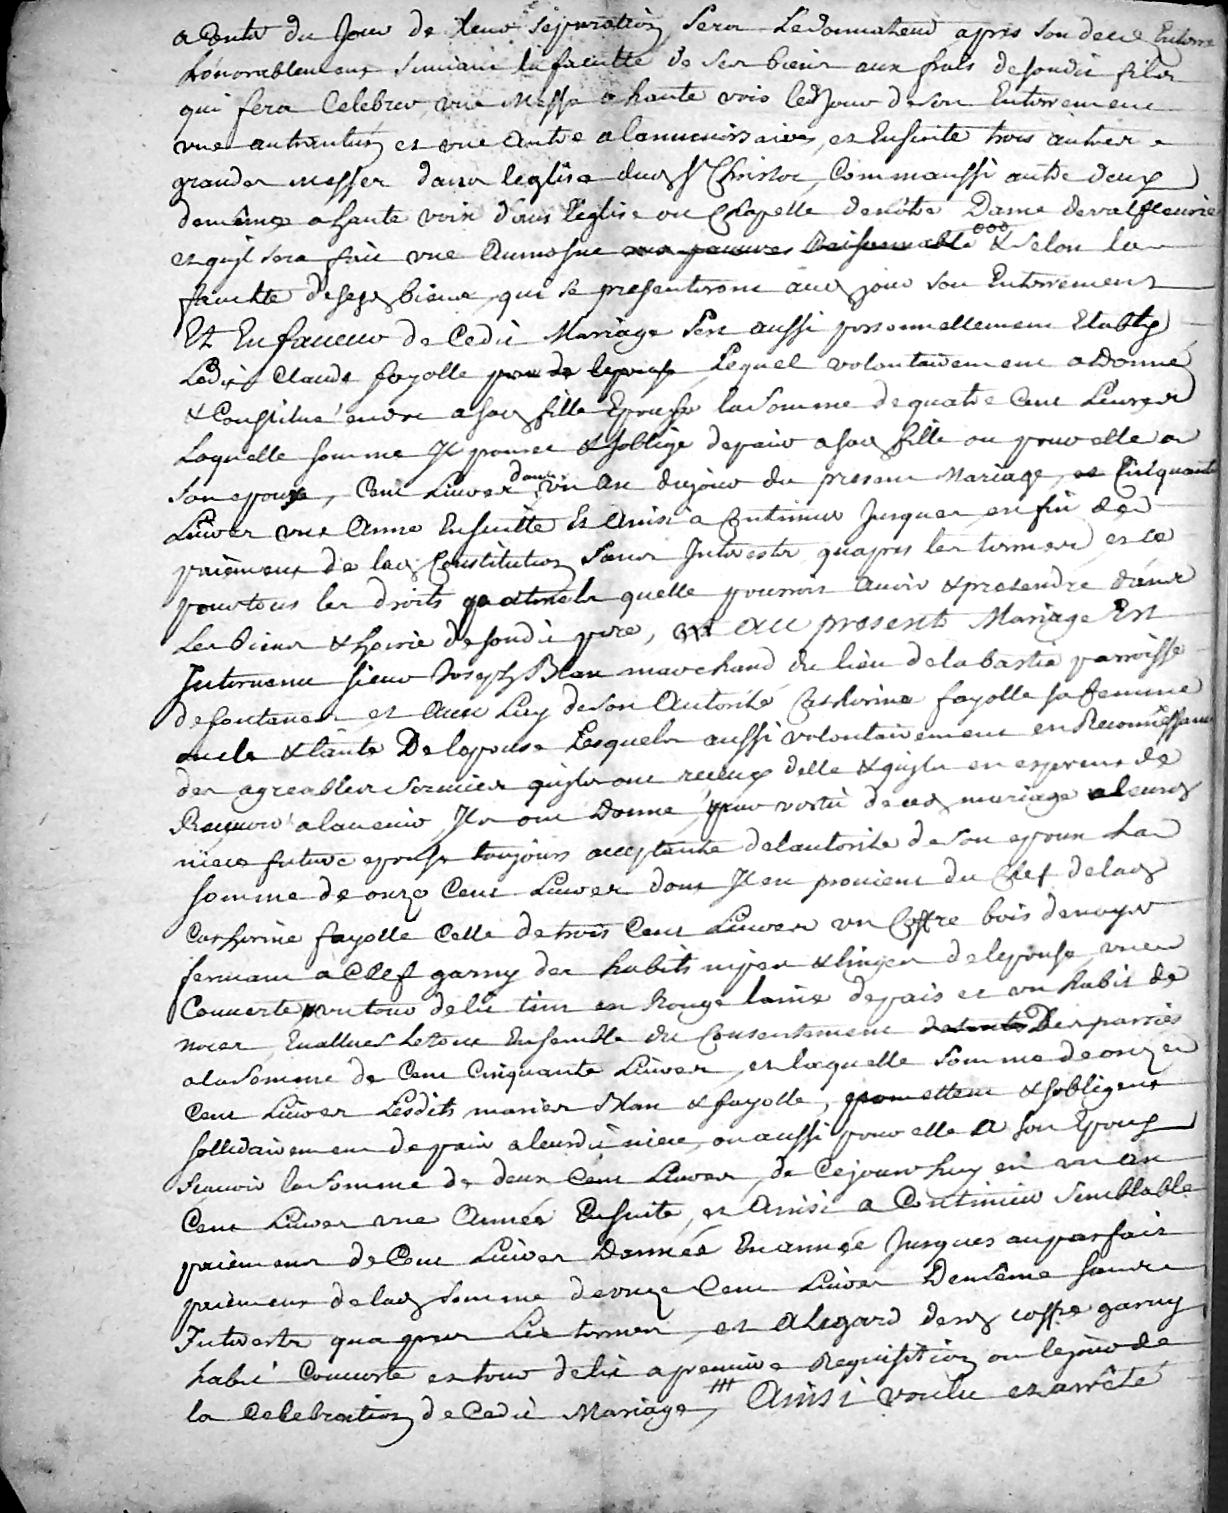 a Conter du Jour de leur separation sera Ledonnateur apres son deces Enterré
honorablement suivant la faculté de ses biens aux frais desondit fils
qui fera Celebrer une Messe a haute voix ledt Jour de son Enterrement
une autre et une Autre a lanniversaire, et Ensuite trois autres
grandes messes dans leglise dud St Christoe, Comm aussi autre deux
demême a haute voix dans l'eglise ou Chapelle denôtre Dame devalfleurie
et quil sera fait une Aumosne aux pauvres ooo & selon la
faculté desesd biens qui se presenteront aud jour son Enterrement
Et Enfaveur de Cedit Mariage s'est aussi personnellement Etably
Ledit Claude fayolle pere de lepouse Lequel volontairement a Donné
& Constitué encore a sad fille Epouse la somme de quatre Cent Livres
Laquelle somme Il promet & soblige depaier a sad fille ou pour elle a
son epoux, Cent Livres dans un An dujour du present Mariage, et Cinquante
Livres une Année Ensuitte Et Ainsi a Continuer Jusques en fin de
paiement de lad Constitution sans Interests quapres les termes, et ce
pour tous les droits quelle pourroit avoir & pretendre dans
les biens & hoirie desondit pere, au present Mariage Est
Intervenu sieur Joseph Blan marchand du lieu dela bastie parroisse
defontanes et avec Luy deson Autorité Catherine fayolle sa femme
oncle & tante De lepouse Lesquels aussi volontairement en Reconnoissance
des agreables services quils ont receus delle & quils en esperent de
Recevoir alavenir, Ils ont Donné pour vertu decedt mariage aleurd
niece future epouse toujours acceptante delautorité deson epoux La
somme de onze Cent Livres dont Il en provient du Chef delad
Catherine fayolle Celle de trois Cent Livres un Coffre bois denoyer
fermant a Clef garny des habits nipes & linges de lepouse, une
Couverte, un tour de lit tint en Rouge laine depais et un habit de
noces, Evallués letout Ensemble du Consentement Des parties
a la somme de Cent Cinquante Livres, et laquelle somme de onze
Cent Livres Lesdits mariés Blan & fayolle, promettent & sobligent
sollidairement depaier aleurdit niece, ou aussi pour elle a son Epoux
scavoir la somme de deux Cent Livres, de Cejourd'huy en un an
Cent Livres une Année Ensuite, et Ainsi a Continuer semblable
paiement de Cent Livres Dannée En année Jusques au parfait
paiement de lad somme de onze Cent Livres Demême sans
Interests qu apres Les termes, et Alegard dud coffre garny
habit Couverte et tour de lit a premiere Requisition ou lejour de
la Celebration de Cedit Mariage, ### Ainsi voulu et arrêté